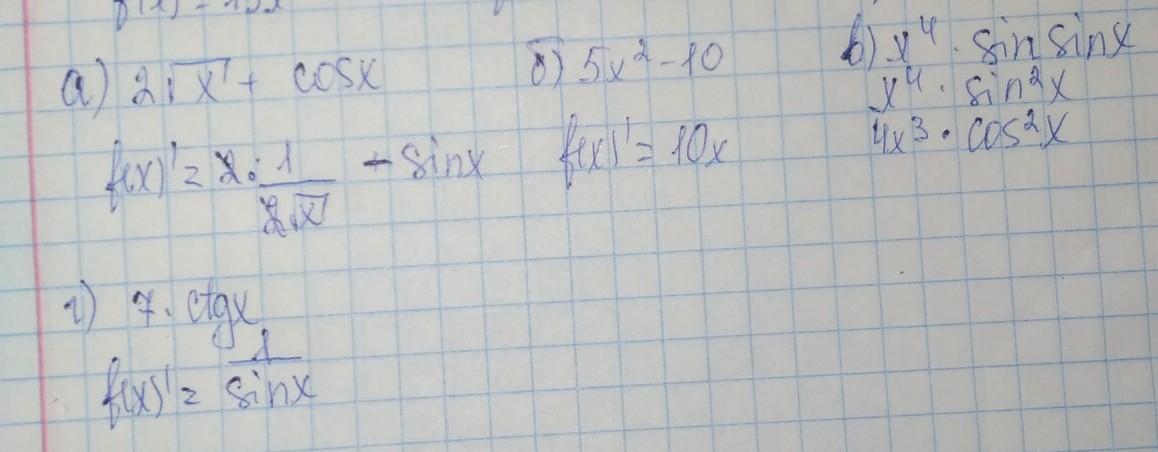 а) 2√x + cosx
f(x)' = 2 · 1/(2√x) - sinx
б) 5x² - 10
f(x)' = 10x
в) x⁴ · sin sinx
x⁴ · sin²x
4x³ · cos²x
г) 7 · ctgx
f(x)' = 1/sinx